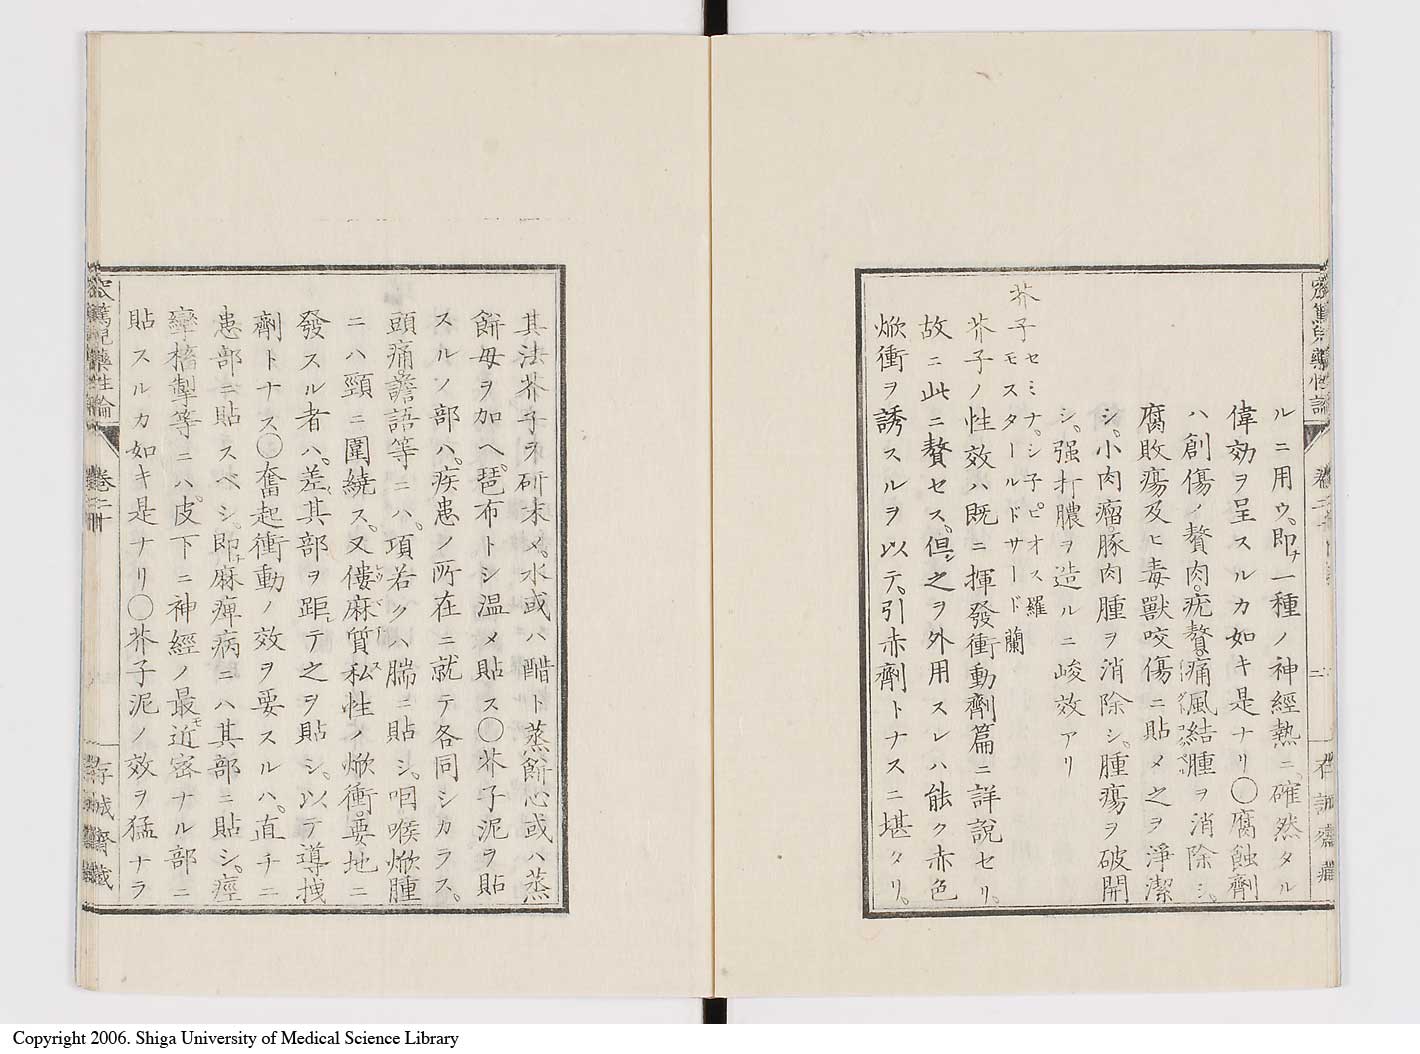 ルニ用ウ。即ナ一種ノ神經熱ニ。確然タル
偉効ヲ呈スルカ如キ是ナリ〇腐蝕劑
ハ創傷ノ贅肉。疣贅。痛風結腫ヲ消除シ。
腐敗瘍及ヒ毒獸咬傷ニ貼メ之ヲ淨潔
シ。小肉瘤。豚肉腫ヲ消除シ。腫瘍ヲ破開
シ。强打膿ヲ造ルニ峻效アリ
芥子 セミナ。シ子ピオス 羅 モスタールドサード 蘭
芥子ノ性效ハ既ニ揮發衝動劑篇ニ詳說セリ。
故ニ此ニ贅セス。但シ之ヲ外用スレハ能ク赤色
焮衝ヲ誘スルヲ以テ。引赤劑トナスニ堪タリ。
其法芥子ヲ研末メ。水或ハ醋ト蒸餅心或ハ蒸
餅母ヲ加ヘ。琶布トシ温メ貼ス〇芥子泥ヲ貼
スルノ部ハ。疾患ノ所在ニ就テ各同シカラス。
頭痛。譫語等ニハ。項若クハ腨ニ貼シ。咽喉焮腫
ニハ頸ニ圍繞ス。又僂麻質私性ノ焮衝。要地ニ
發スル者ハ。差其部ヲ距テ之ヲ貼シ。以テ導拽
劑トナス〇奮起衝動ノ效ヲ要スルハ。直チニ
患部ニ貼スベシ。即ナ麻痺病ニハ其部ニ貼シ。痙
攣搐掣等ニハ。皮下ニ神經ノ最モ近密ナル部ニ
貼スルカ如キ是ナリ〇芥子泥ノ效ヲ猛ナラ
卷二十
存誠齋藏
Copyright 2006. Shiga University of Medical Science Library